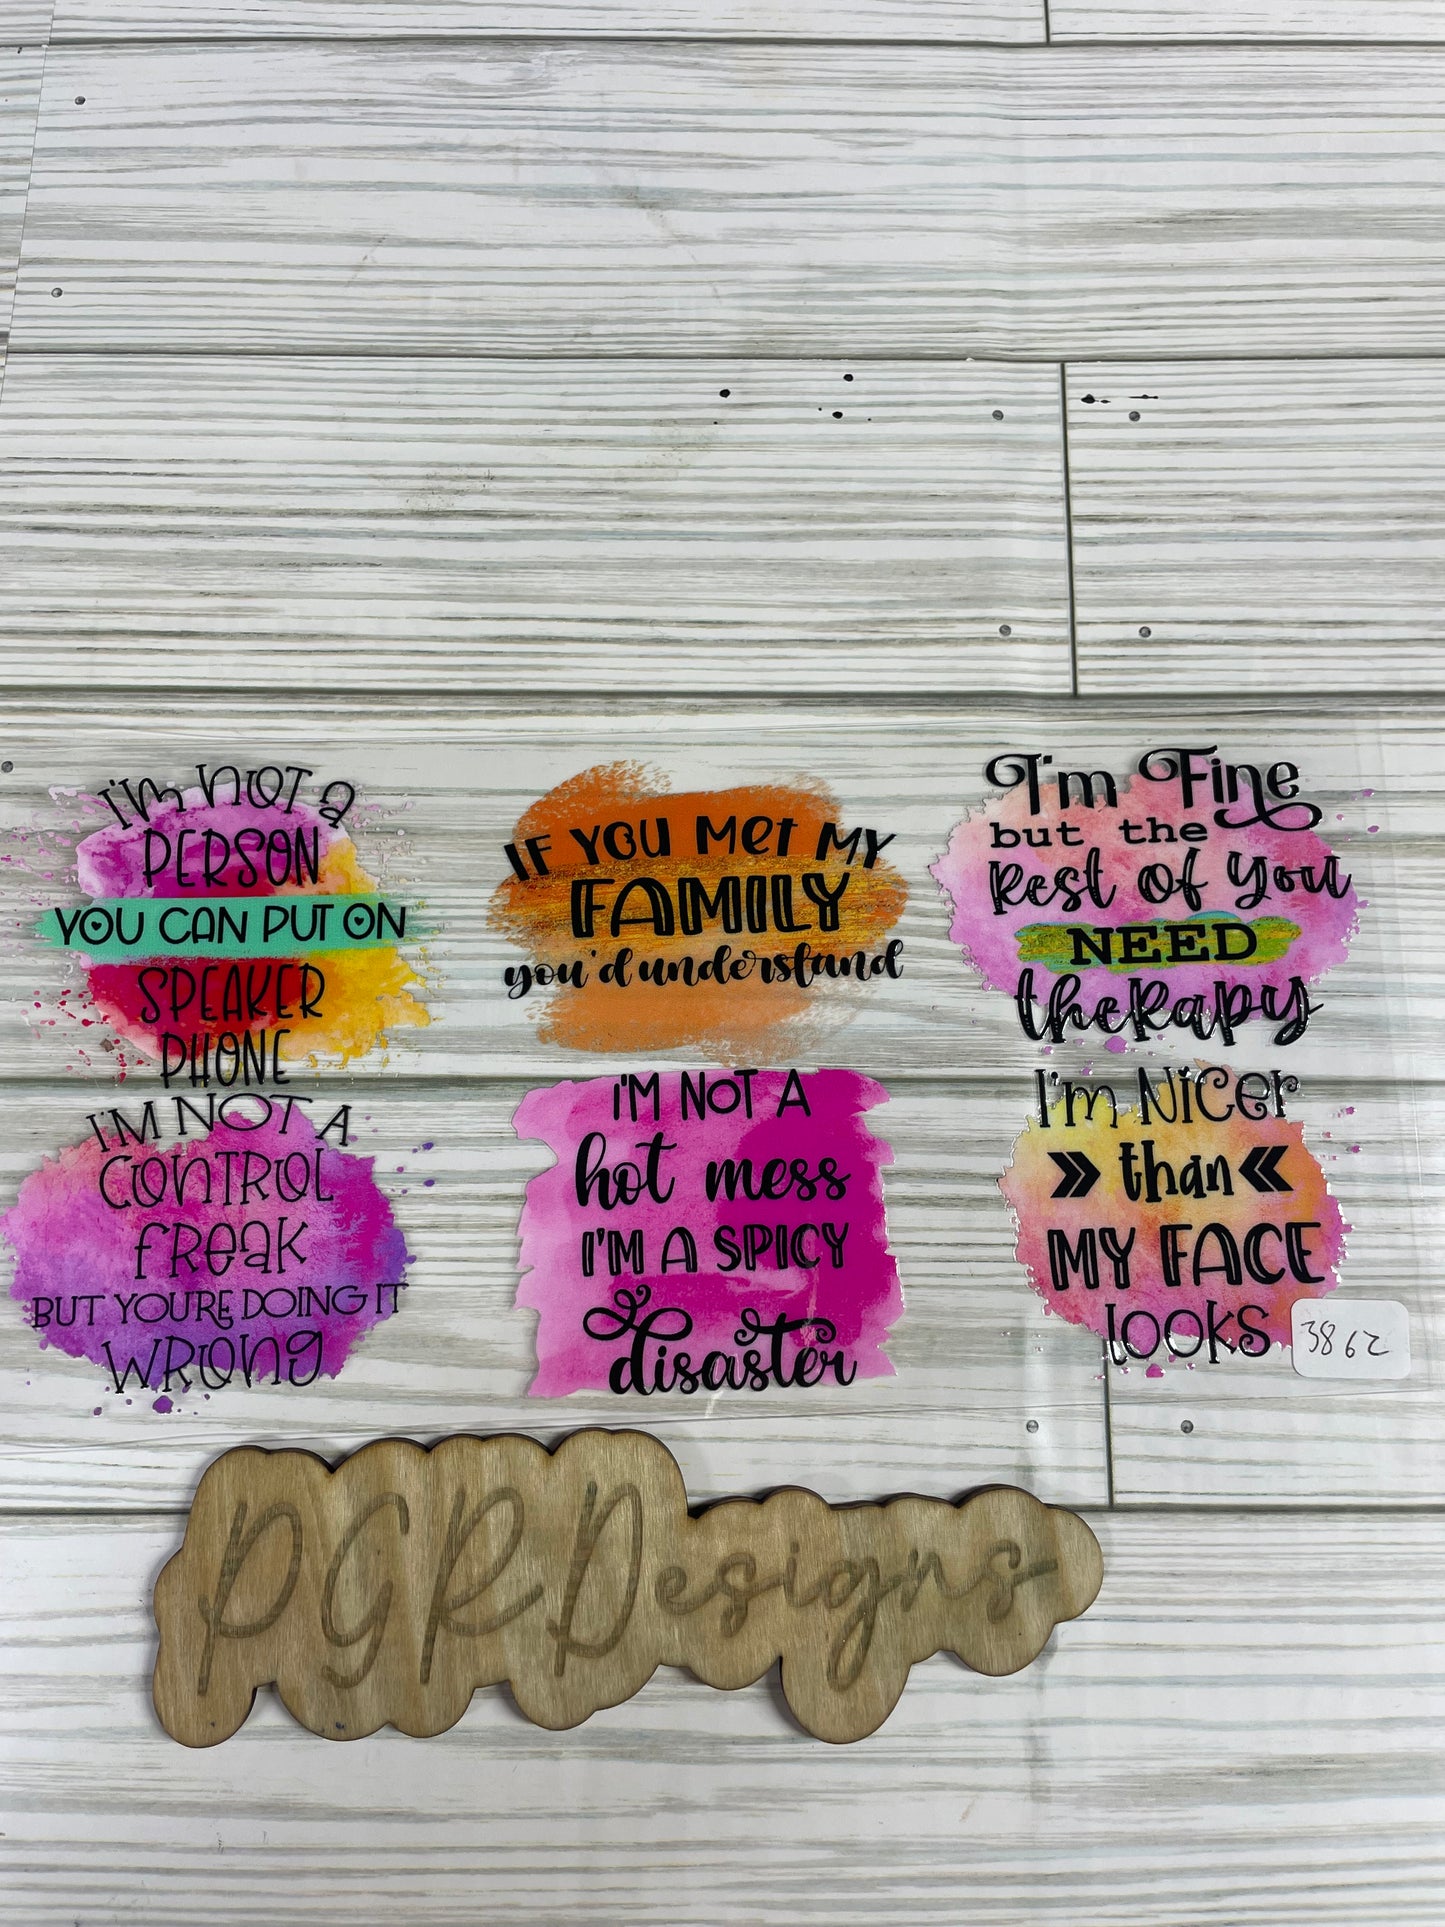 I'm NOT a
PERSON
YOU CAN PUT ON
SPEAKER
PHONE
IF YOU Met MY
FAMILY
you'd understand
I'm Fine
but the
Rest of you
NEED
theRapy
I'M NOT A
CONTROL
fReak
BUT YOU'RE DOING IT
WRONG
I'M NOT A
hot mess
I'M A SPICY
disaster
I'm Nicer
than
MY FACE
looks
3862
PGRDesigns